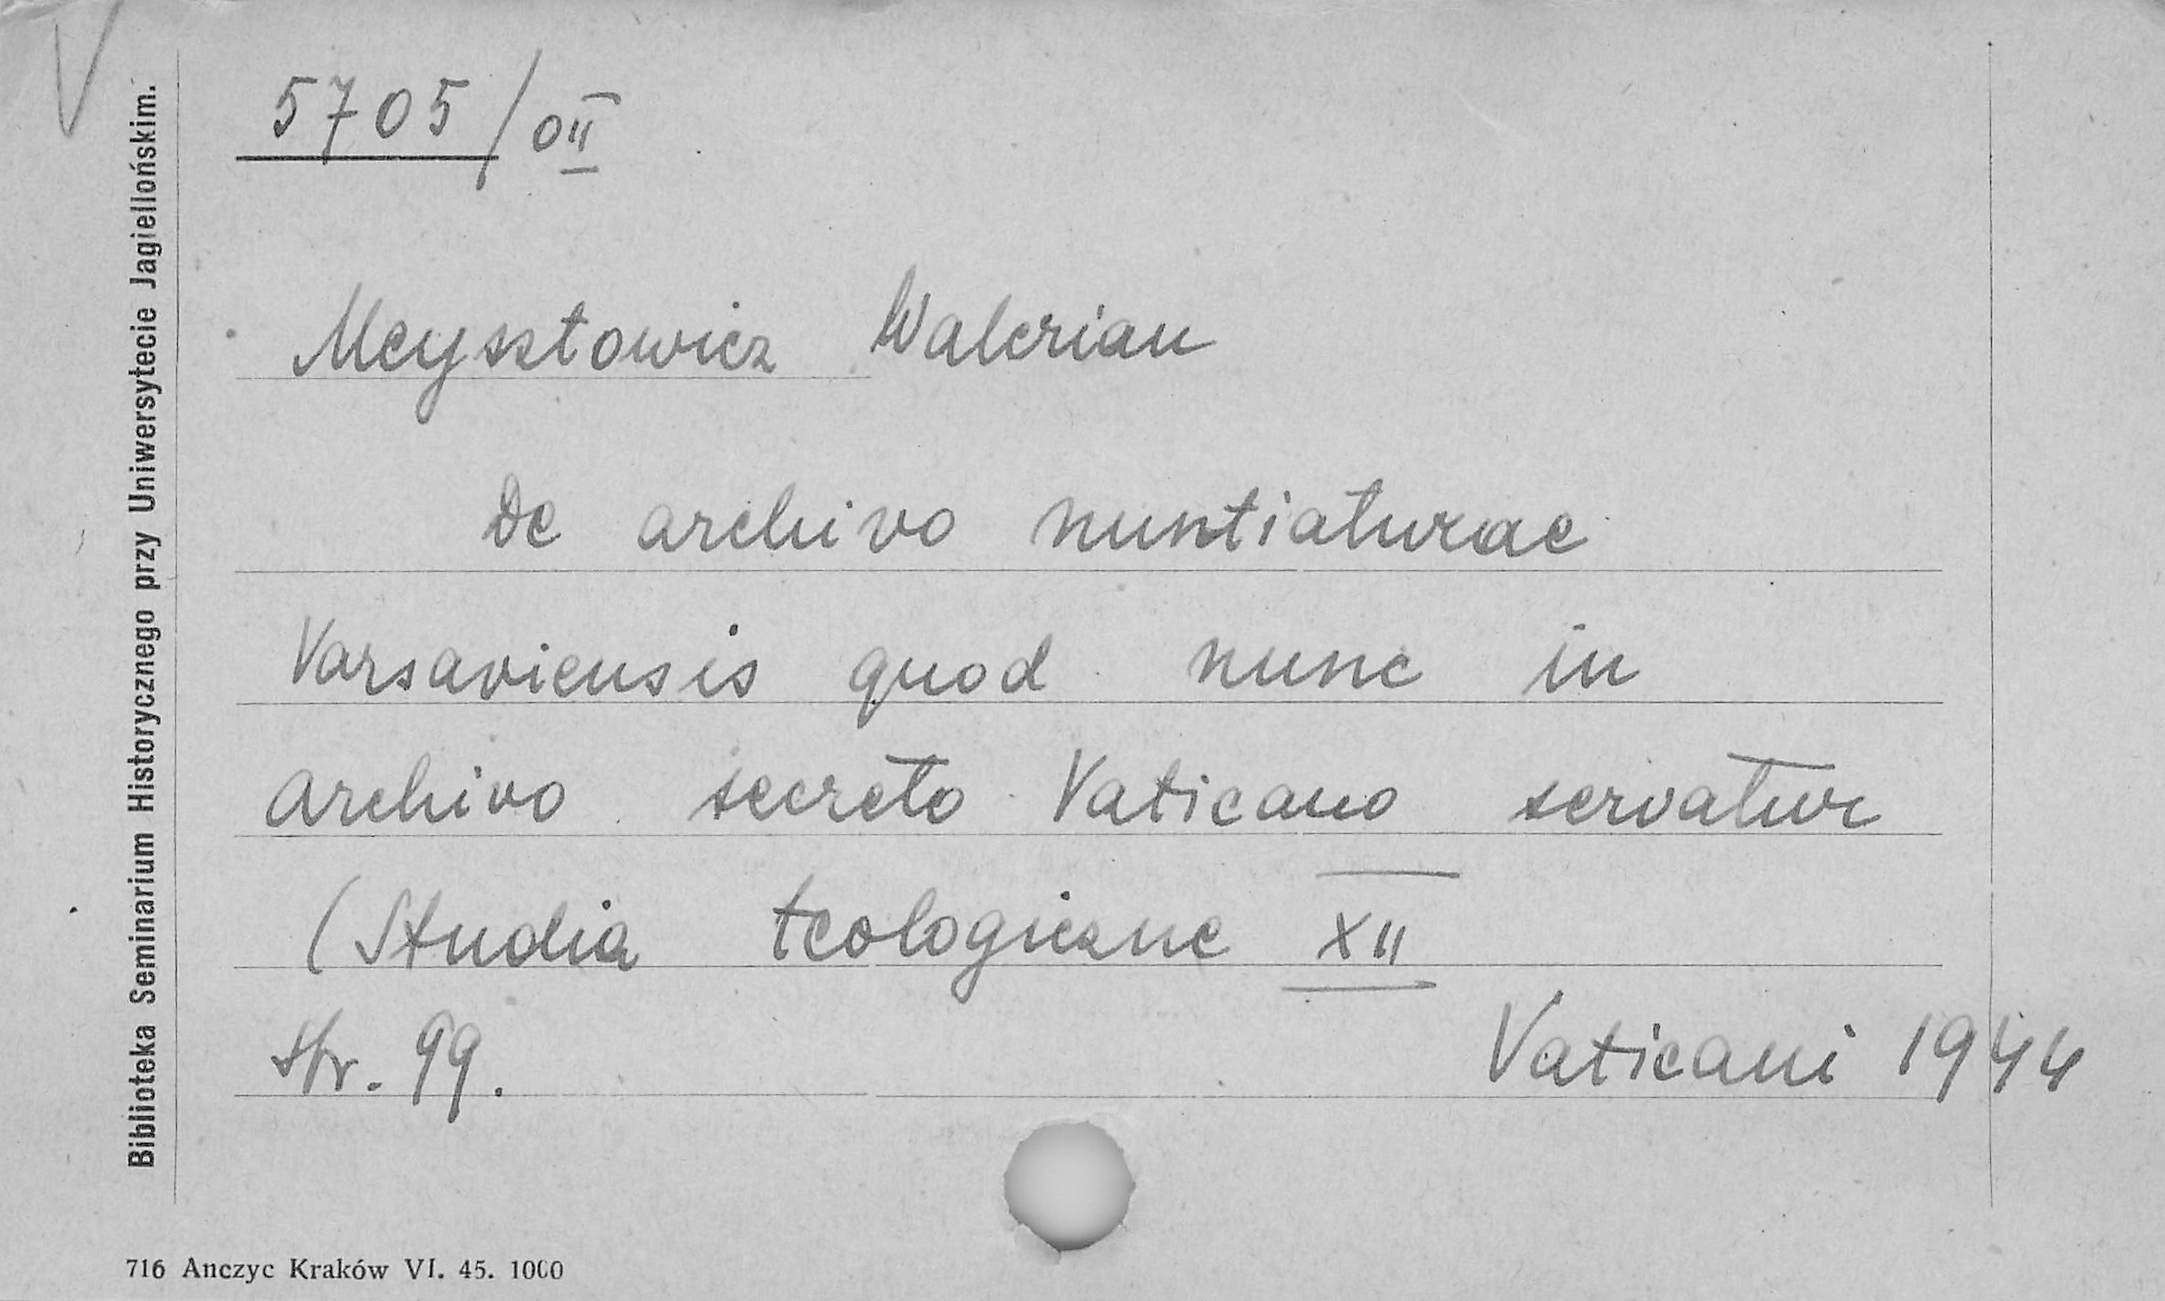 V
5705/oII
Meysztowicz Walerian
De archivo nuntiaturae
Varsaviensis quod nunc in
archivo secreto Vaticano servatur
(Studia teologiczne XII
str. 99. Vaticani 1944
Biblioteka Seminarium Historycznego przy Uniwersytecie Jagiellońskim.
716 Anczyc Kraków VI. 45. 1000